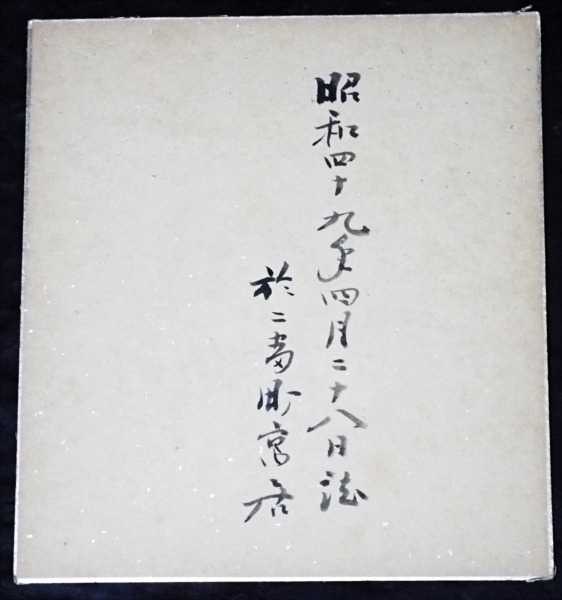 昭和四十九年四月二十八日誌
於二番町寓居